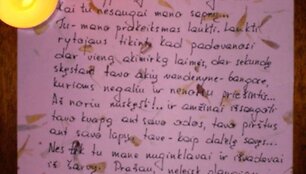 kai tu nesaugai mano sapnų...
Tu- mano prakeiksmas laukti, laukti
rytojaus tikint, kad padovanosi
dar vieną akimirką laimės, dar sekundę
skęstant tavo akių vandenyne-bangose,
kurioms negaliu ir nenoriu priešintis...
Aš noriu nuskęsti!... ir amžinai išsaugoti
tavo kvapą ant savo odos, tavo pirštus
ant savo lūpų, tave - kaip dalelę savęs...
Nes tik tu mane nuginklavai ir išvadavai
iš šarvų. Prašau, neleisk